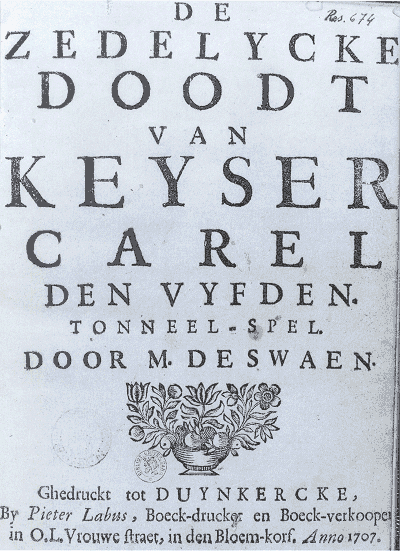 DE
Res. 674
ZEDELYCKE
DOODT
VAN
KEYSER
CAREL
DEN VYFDEN.
TONNEEL-SPEL.
DOOR M. DE SWAEN.
Ghedruckt tot DUYNKERCKE,
By Pieter Labus, Boeck-drucker en Boeck-verkooper
in O.L. Vrouwe straet, in den Bloem-korf. Anno 1707.